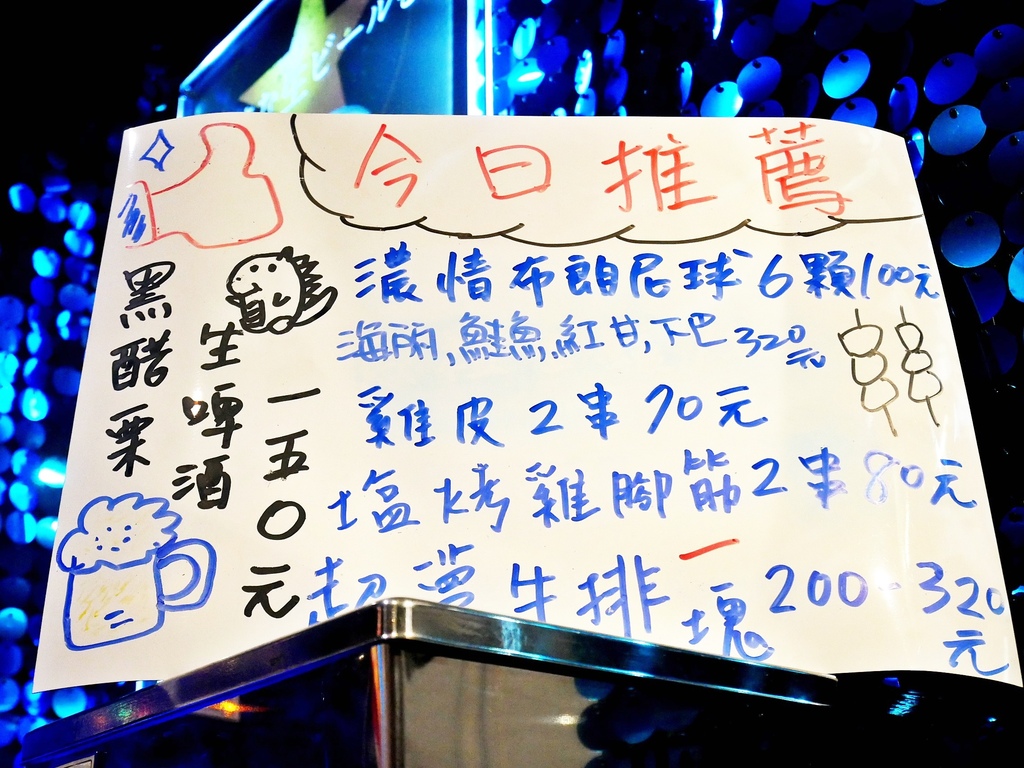 ビール
今日推薦
濃情布朗尼球6顆100元
海雨,鮭魚,紅甘,下巴320元
雞皮2串70元
塩烤雞腳筋2串80元
超澎牛排一塊200-320元
黑醋栗
生啤酒
一五〇元